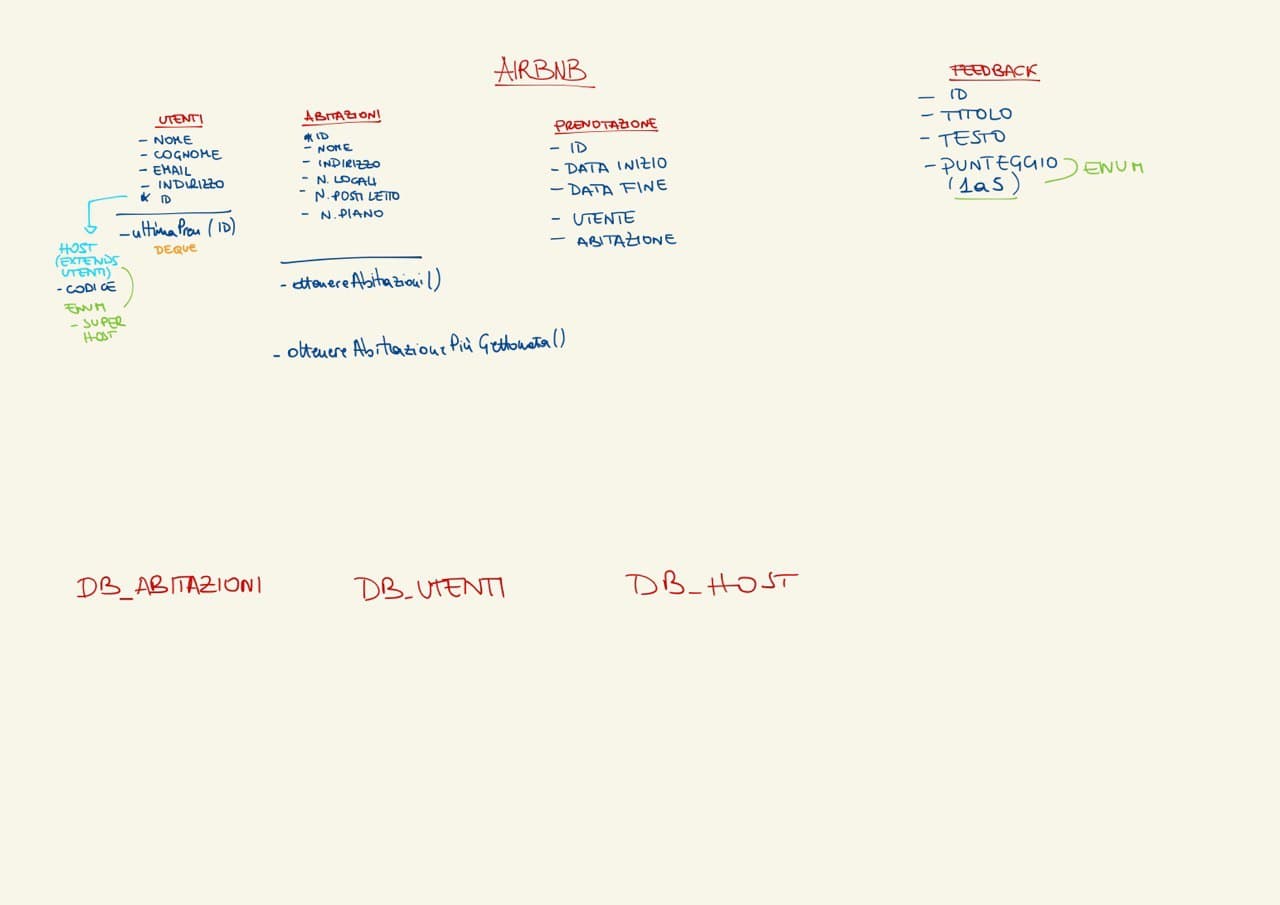 AIRBNB
UTENTI
- NOME
- COGNOME
- EMAIL
- INDIRIZZO
* ID
- ultimaPren (ID)
DEQUE
HOST
(EXTENDS
UTENTI)
- CODICE
ENUM
- SUPER
HOST
ABITAZIONI
* ID
- NOME
- INDIRIZZO
- N. LOCALI
- N. POSTI LETTO
- N. PIANO
- ottenereAbitazioni()
- ottenereAbitazionePiù Gettonata()
PRENOTAZIONE
- ID
- DATA INIZIO
- DATA FINE
- UTENTE
- ABITAZIONE
FEEDBACK
- ID
- TITOLO
- TESTO
- PUNTEGGIO
(1a5)
ENUM
DB_ABITAZIONI
DB_UTENTI
DB_HOST